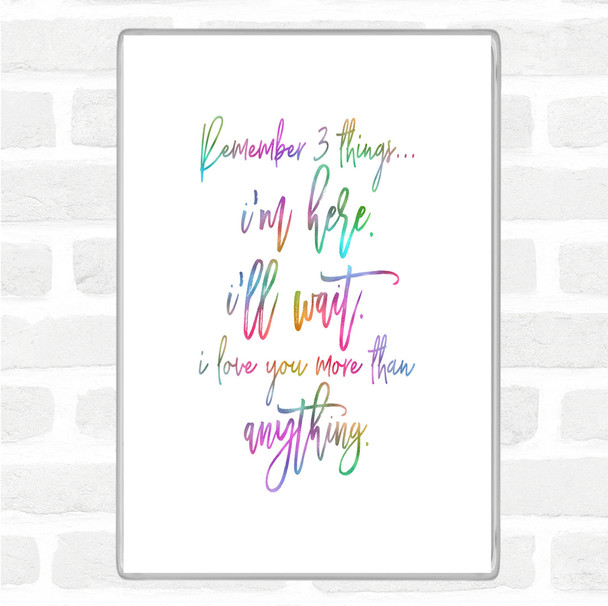 Remember 3 things...
i'm here.
i'll wait.
i love you more than
anything.